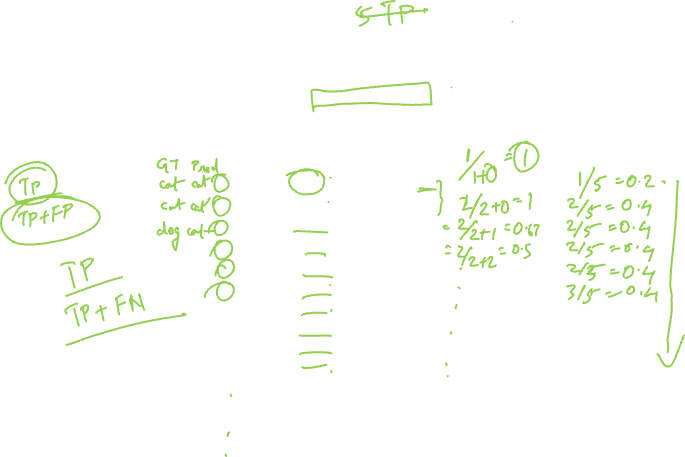 5 TP
TP
TP+FP
TP
TP + FN
GT Pred
cat cat
cat cat
dog cat
1/1+0 = 1
2/2+0 = 1
= 2/2+1 = 0.67
= 2/2+2 = 0.5
1/5 = 0.2
2/5 = 0.4
2/5 = 0.4
2/5 = 0.4
2/5 = 0.4
3/5 = 0.4